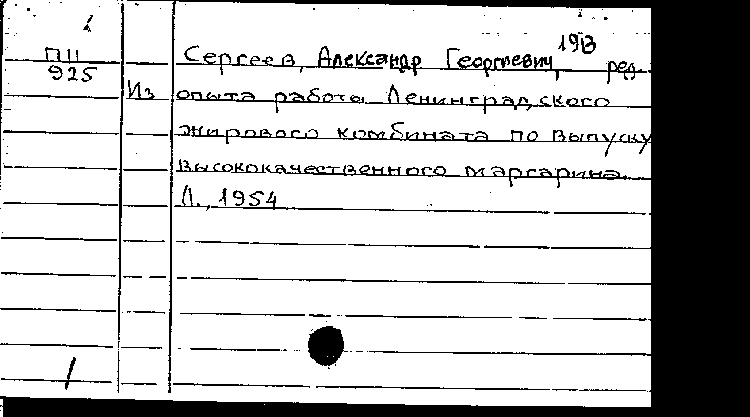 1913
П11 Сергеев, Александр Георгиевич, ред.
925
Из опыта работы Ленинградского
жирового комбината по выпуску
высококачественного маргарина.
Л., 1954